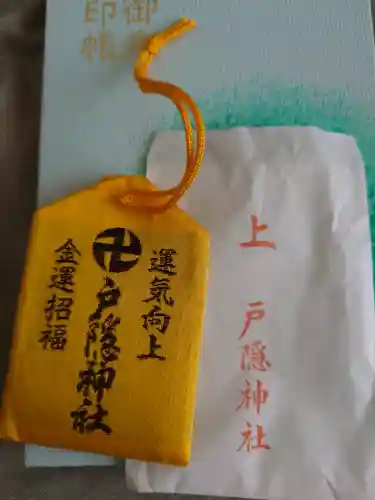 御朱
印帳
運気向上
卍戸隠神社
金運招福
上
戸隠神社